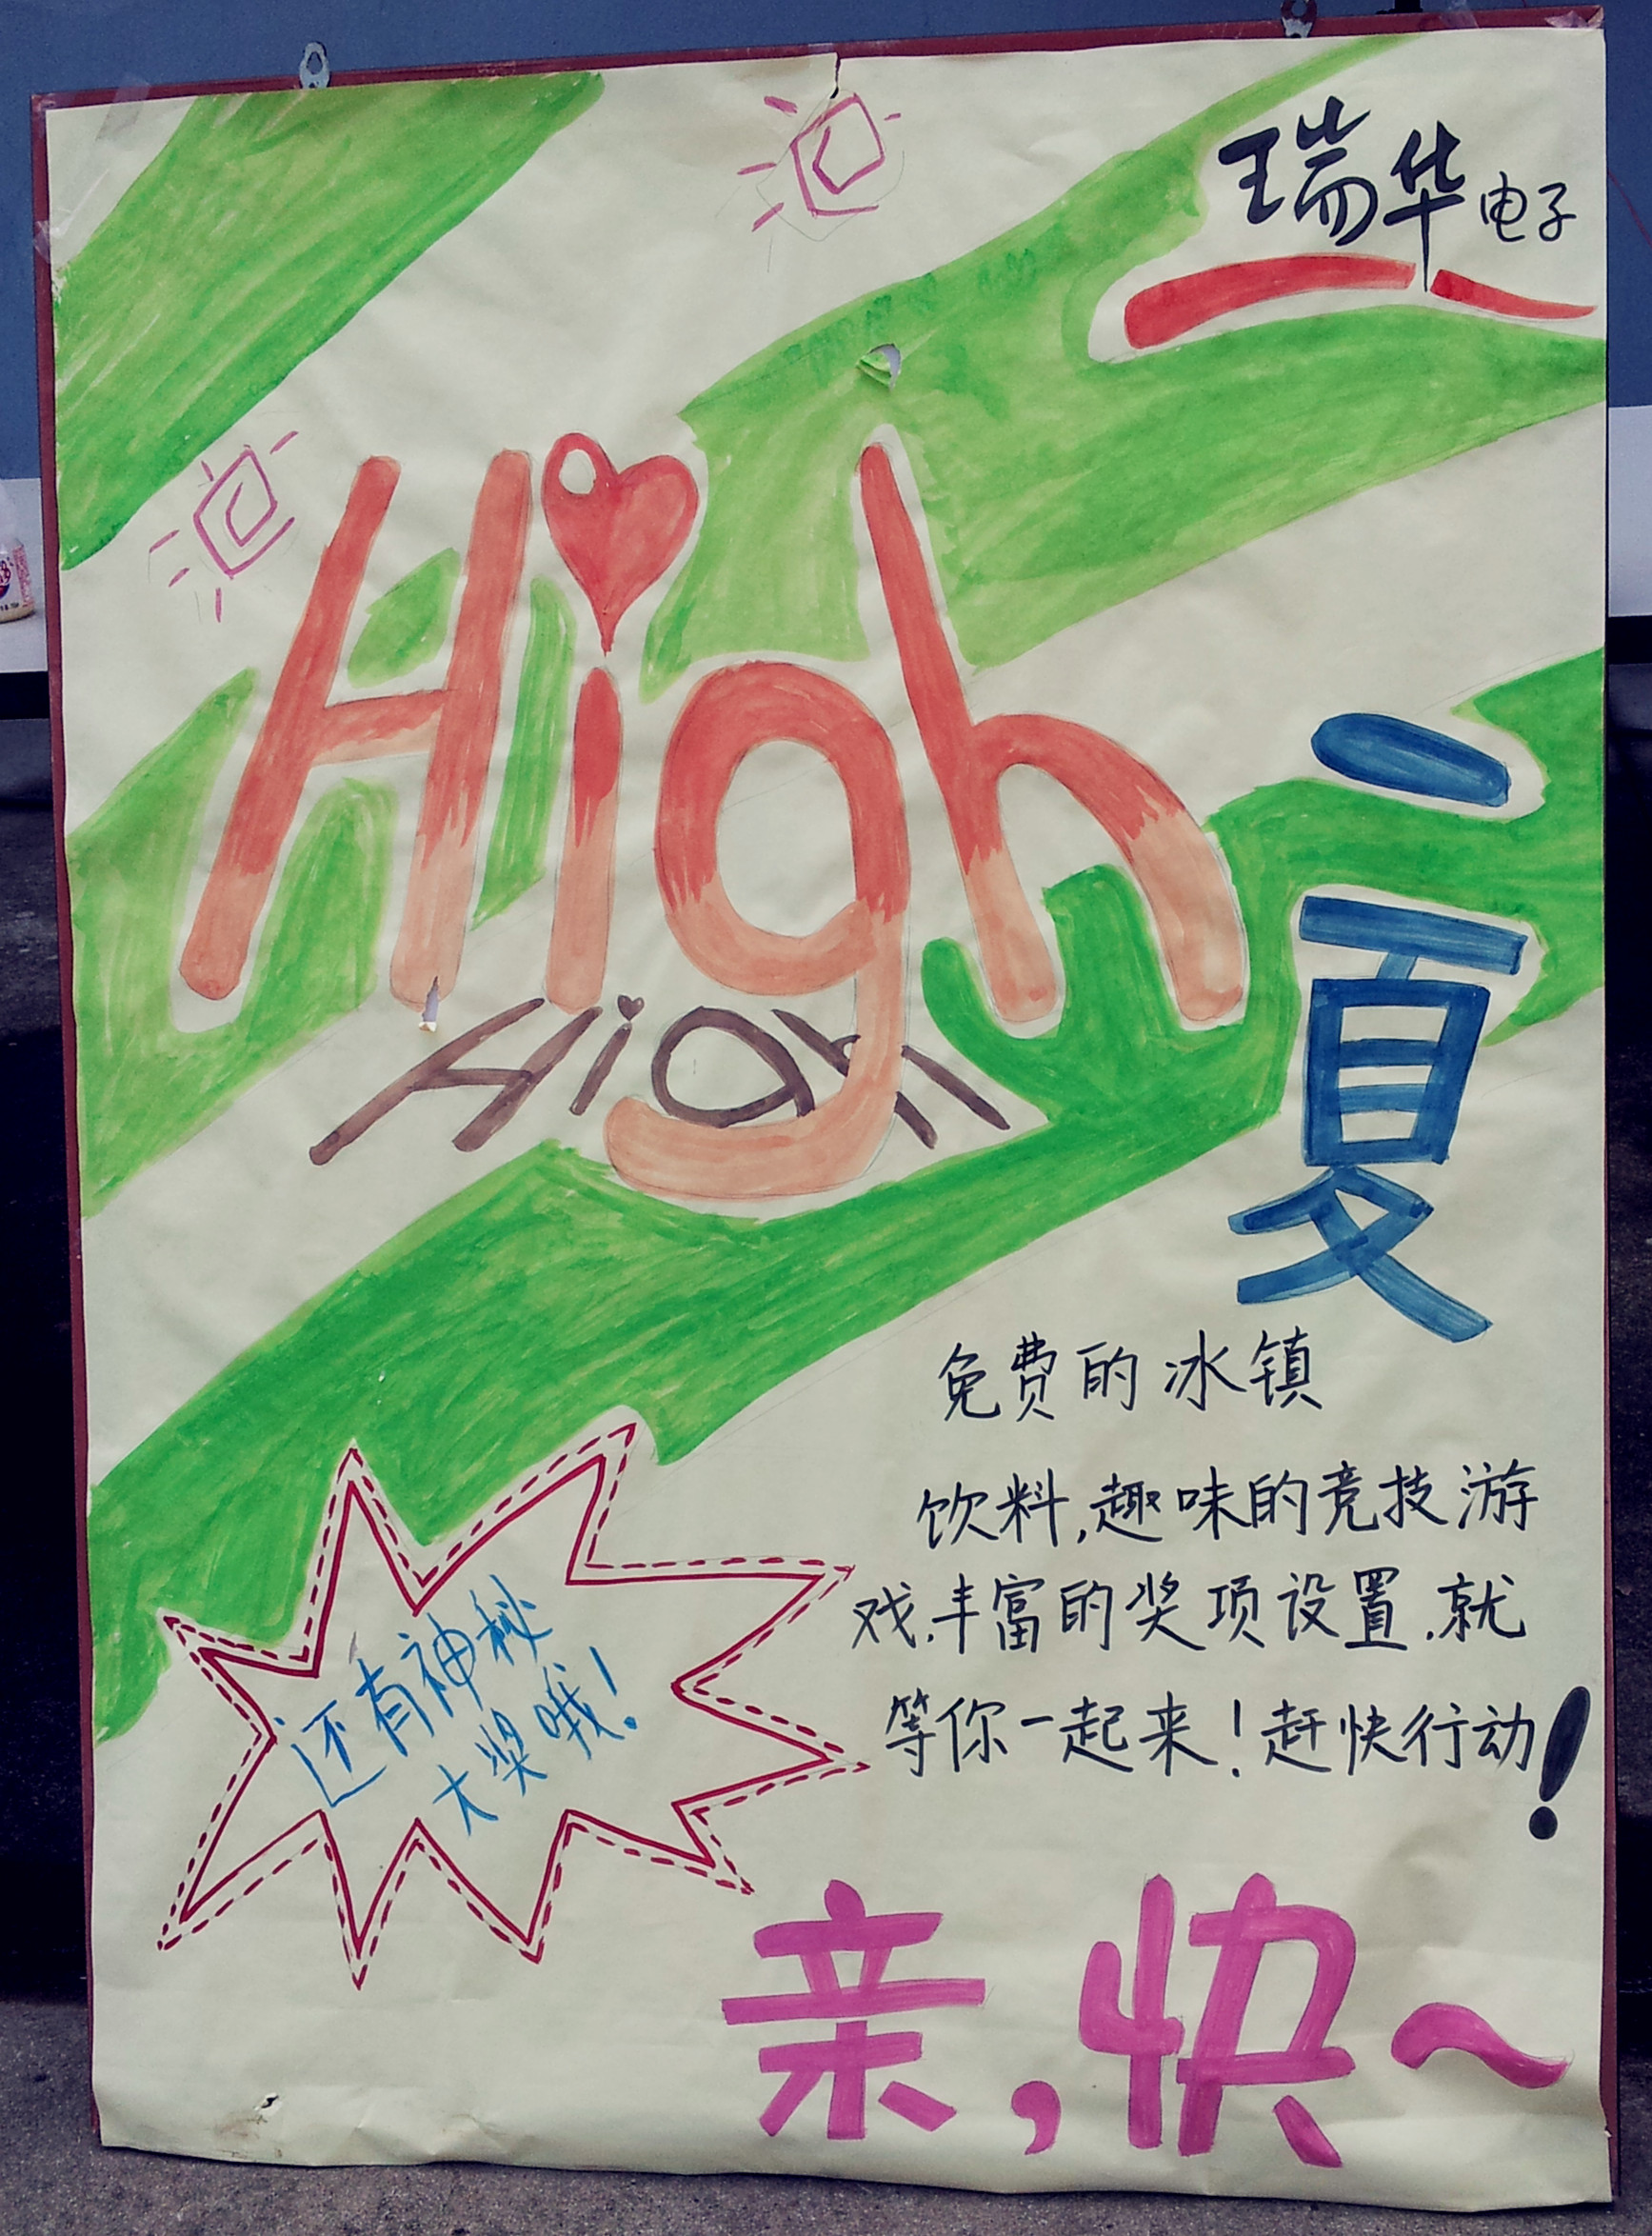 瑞华电子
High
High
一夏
免费的冰镇
饮料,趣味的竞技游
戏,丰富的奖项设置,就
等你一起来!赶快行动!
还有神秘
大奖哦!
亲,快~